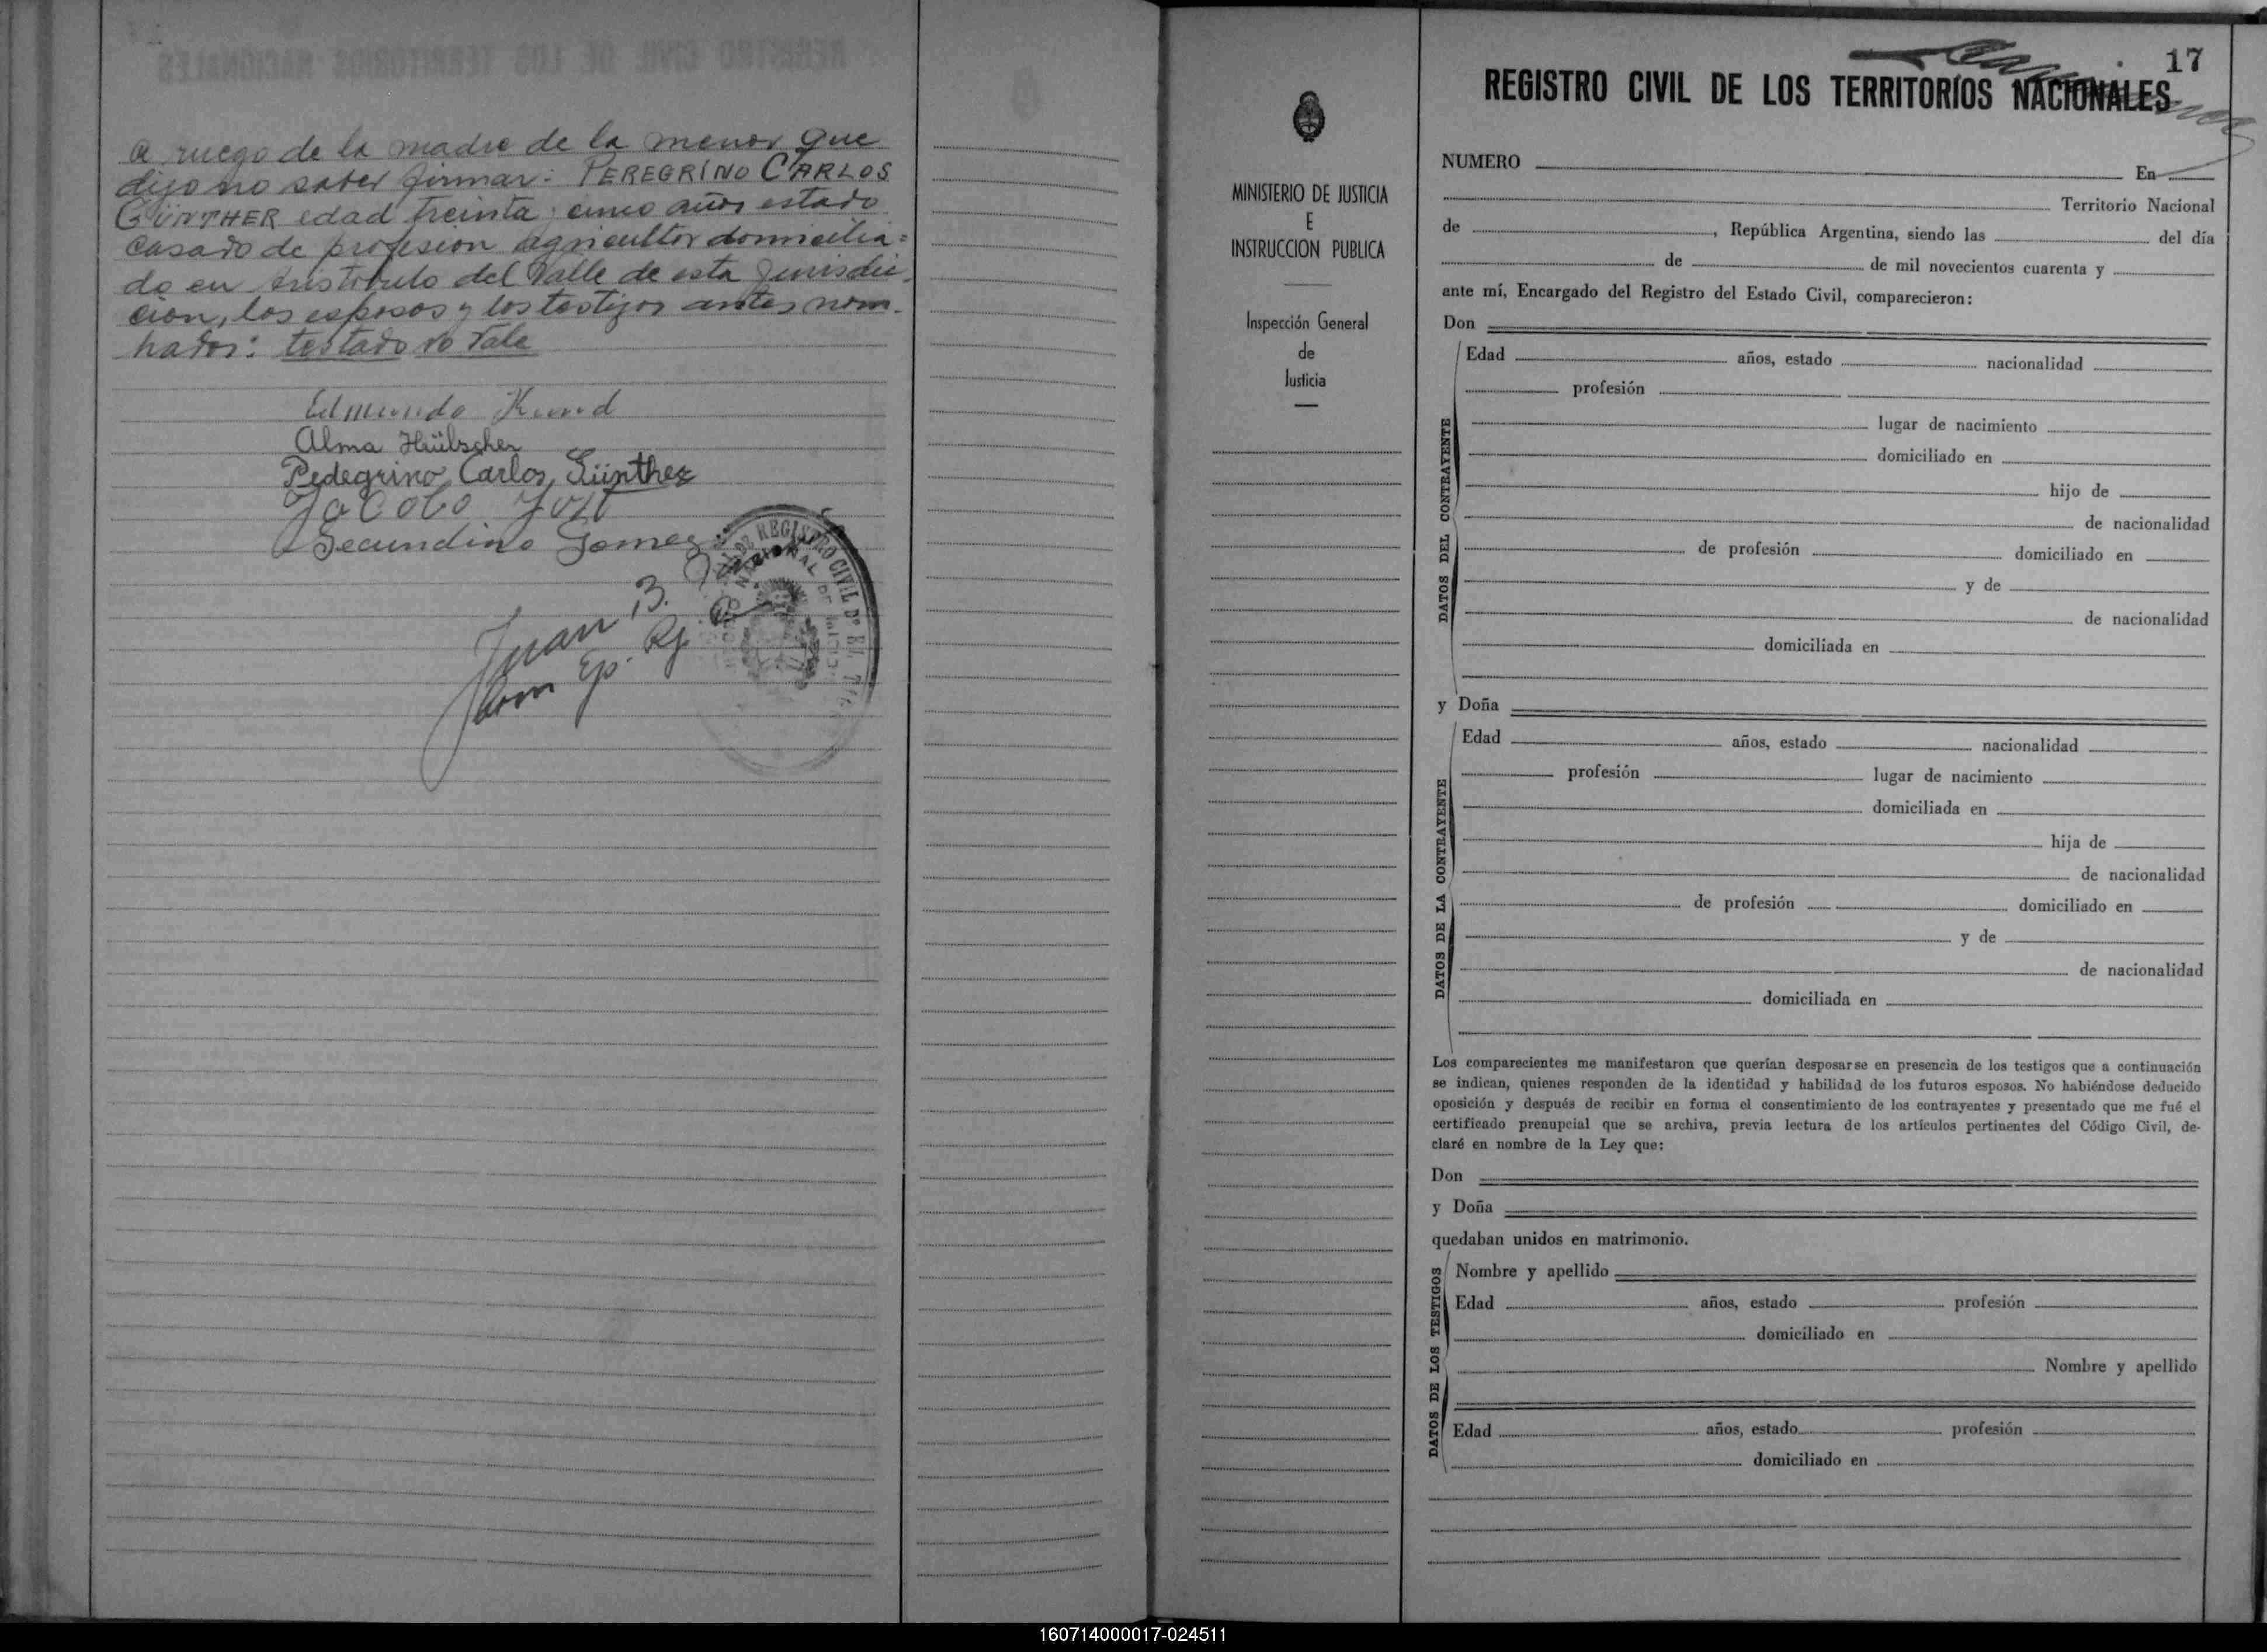 a ruego de la madre de la menor que
dijo no saber firmar: PEREGRINO CARLOS
GÜNTHER edad treinta y cinco años estado
casado de profesion agricultor domicilia=
do en Aristobulo del Valle de esta Jurisdic-
cion, los esposos y los testigos antes nom-
brados: testado no vale
Edmundo Kund
Alma Hübscher
Pedegrino Carlos Günther
Jacobo Jost
Secundino Gomez
Juan B.
REGISTRO CIVIL
17
REGISTRO CIVIL DE LOS TERRITORIOS NACIONALES
MINISTERIO DE JUSTICIA
E
INSTRUCCION PUBLICA
Inspección General
de
Justicia
NUMERO En
Territorio Nacional
de , República Argentina, siendo las del día
de de mil novecientos cuarenta y
ante mí, Encargado del Registro del Estado Civil, comparecieron:
Don
DATOS DEL CONTRAYENTE
Edad años, estado nacionalidad
profesión
lugar de nacimiento
domiciliado en
hijo de
de nacionalidad
de profesión domiciliado en
y de
de nacionalidad
domiciliada en
y Doña
DATOS DE LA CONTRAYENTE
Edad años, estado nacionalidad
profesión lugar de nacimiento
domiciliada en
hija de
de nacionalidad
de profesión domiciliado en
y de
de nacionalidad
domiciliada en
Los comparecientes me manifestaron que querían desposarse en presencia de los testigos que a continuación
se indican, quienes responden de la identidad y habilidad de los futuros esposos. No habiéndose deducido
oposición y después de recibir en forma el consentimiento de los contrayentes y presentado que me fué el
certificado prenupcial que se archiva, previa lectura de los artículos pertinentes del Código Civil, de-
claré en nombre de la Ley que:
Don
y Doña
quedaban unidos en matrimonio.
DATOS DE LOS TESTIGOS
Nombre y apellido
Edad años, estado profesión
domiciliado en
Nombre y apellido
Edad años, estado profesión
domiciliado en
160714000017-024511